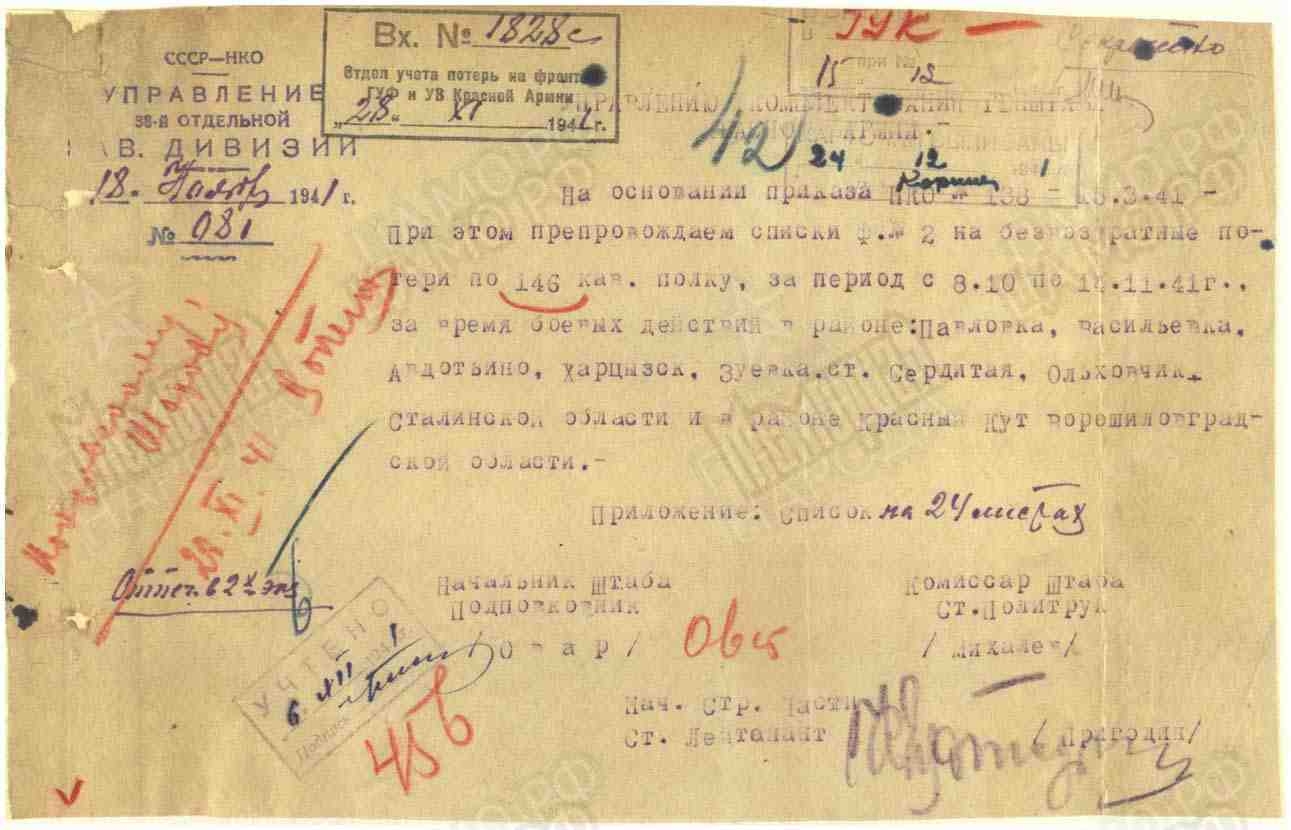 СССР—НКО
УПРАВЛЕНИЕ
38-й ОТДЕЛЬНОЙ
КАВ. ДИВИЗИИ
18 Ноября 1941 г.
№ 081
Вх. № 1828с
Отдел учета потерь на фронте
ГУФ и УВ Красной Армии
„28„ XI 1941 г.
ГУК —
15 при № 12
42
24 12 1
УПРАВЛЕНИЮ
На основании приказа НКО № 138 - 15.3.41 -
При этом препровождаем списки ф.№ 2 на безвозвратные по-
тери по 146 кав. полку, за период с 8.10 по 14.11.41г.,
за время боевых действий в районе:Павловка, Васильевка,
Авдотьино, Харцызск, Зуевка.ст. Сердитая, Ольховчик
Сталинской области и в районе Красный Кут Ворошиловград-
ской области.-
Приложение: Список на 24 листах
28.XI 41
Отпеч. в 2х экз
Начальник Штаба
Подполковник
/Овар/
Комиссар Штаба
Ст.Политрук
/Михалев/
Нач. Стр. Части
Ст. Лейтенант
/Пригодин/
УЧТЕНО
6. XII 1941 г.
Подпись
456